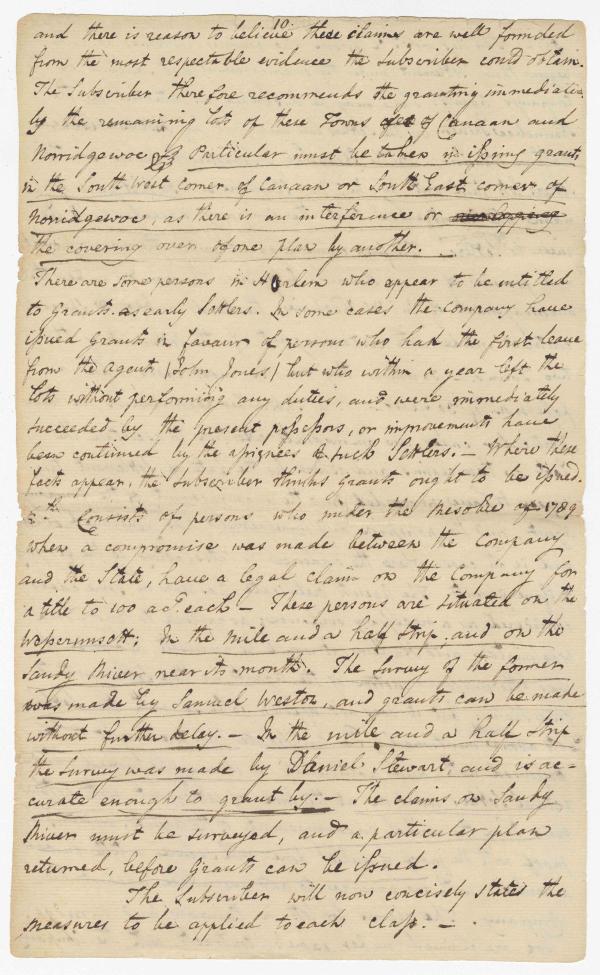 10
and there is reason to believe these claims are well founded
from the most respectable evidence the Subscriber could obtain.
The Subscriber therefore recommends the granting immediate
ly the remaining lots of these Towns of Canaan and
Norridgewoc Particular must be taken in issuing grants
in the South West corner of Canaan or South East corner of
Norridgewoc, as there is an interference or
the covering over of one plan by another. —
There are some persons in Harlem who appear to be entitled
to Grants as early Settlers. In some cases the Company have
issued Grants in favour of persons who had the first leave
from the agent (John Jones) but who within a year left the
lots without performing any duties, and were immediately
succeeded by the present possessors, or improvements have
been continued by the assignees of such Settlers. — Where these
facts appear, the Subscriber thinks grants ought to be issued.
5th. Consists of persons who under the Resolve of 1789
when a compromise was made between the Company
and the State, have a legal claim on the Company for
a title to 100 acs. each — These persons are situated on the
Wesserunsett; In the mile and a half strip, and on the
Sandy River near its mouth. The Survey of the former
was made by Samuel Weston, and grants can be made
without further delay. — In the mile and a half strip
the survey was made by Daniel Stewart, and is ac-
curate enough to grant by. — The claims on Sandy
River must be surveyed, and a particular plan
returned, before Grants can be issued.
The Subscriber will now concisely states the
measures to be applied to each class. —